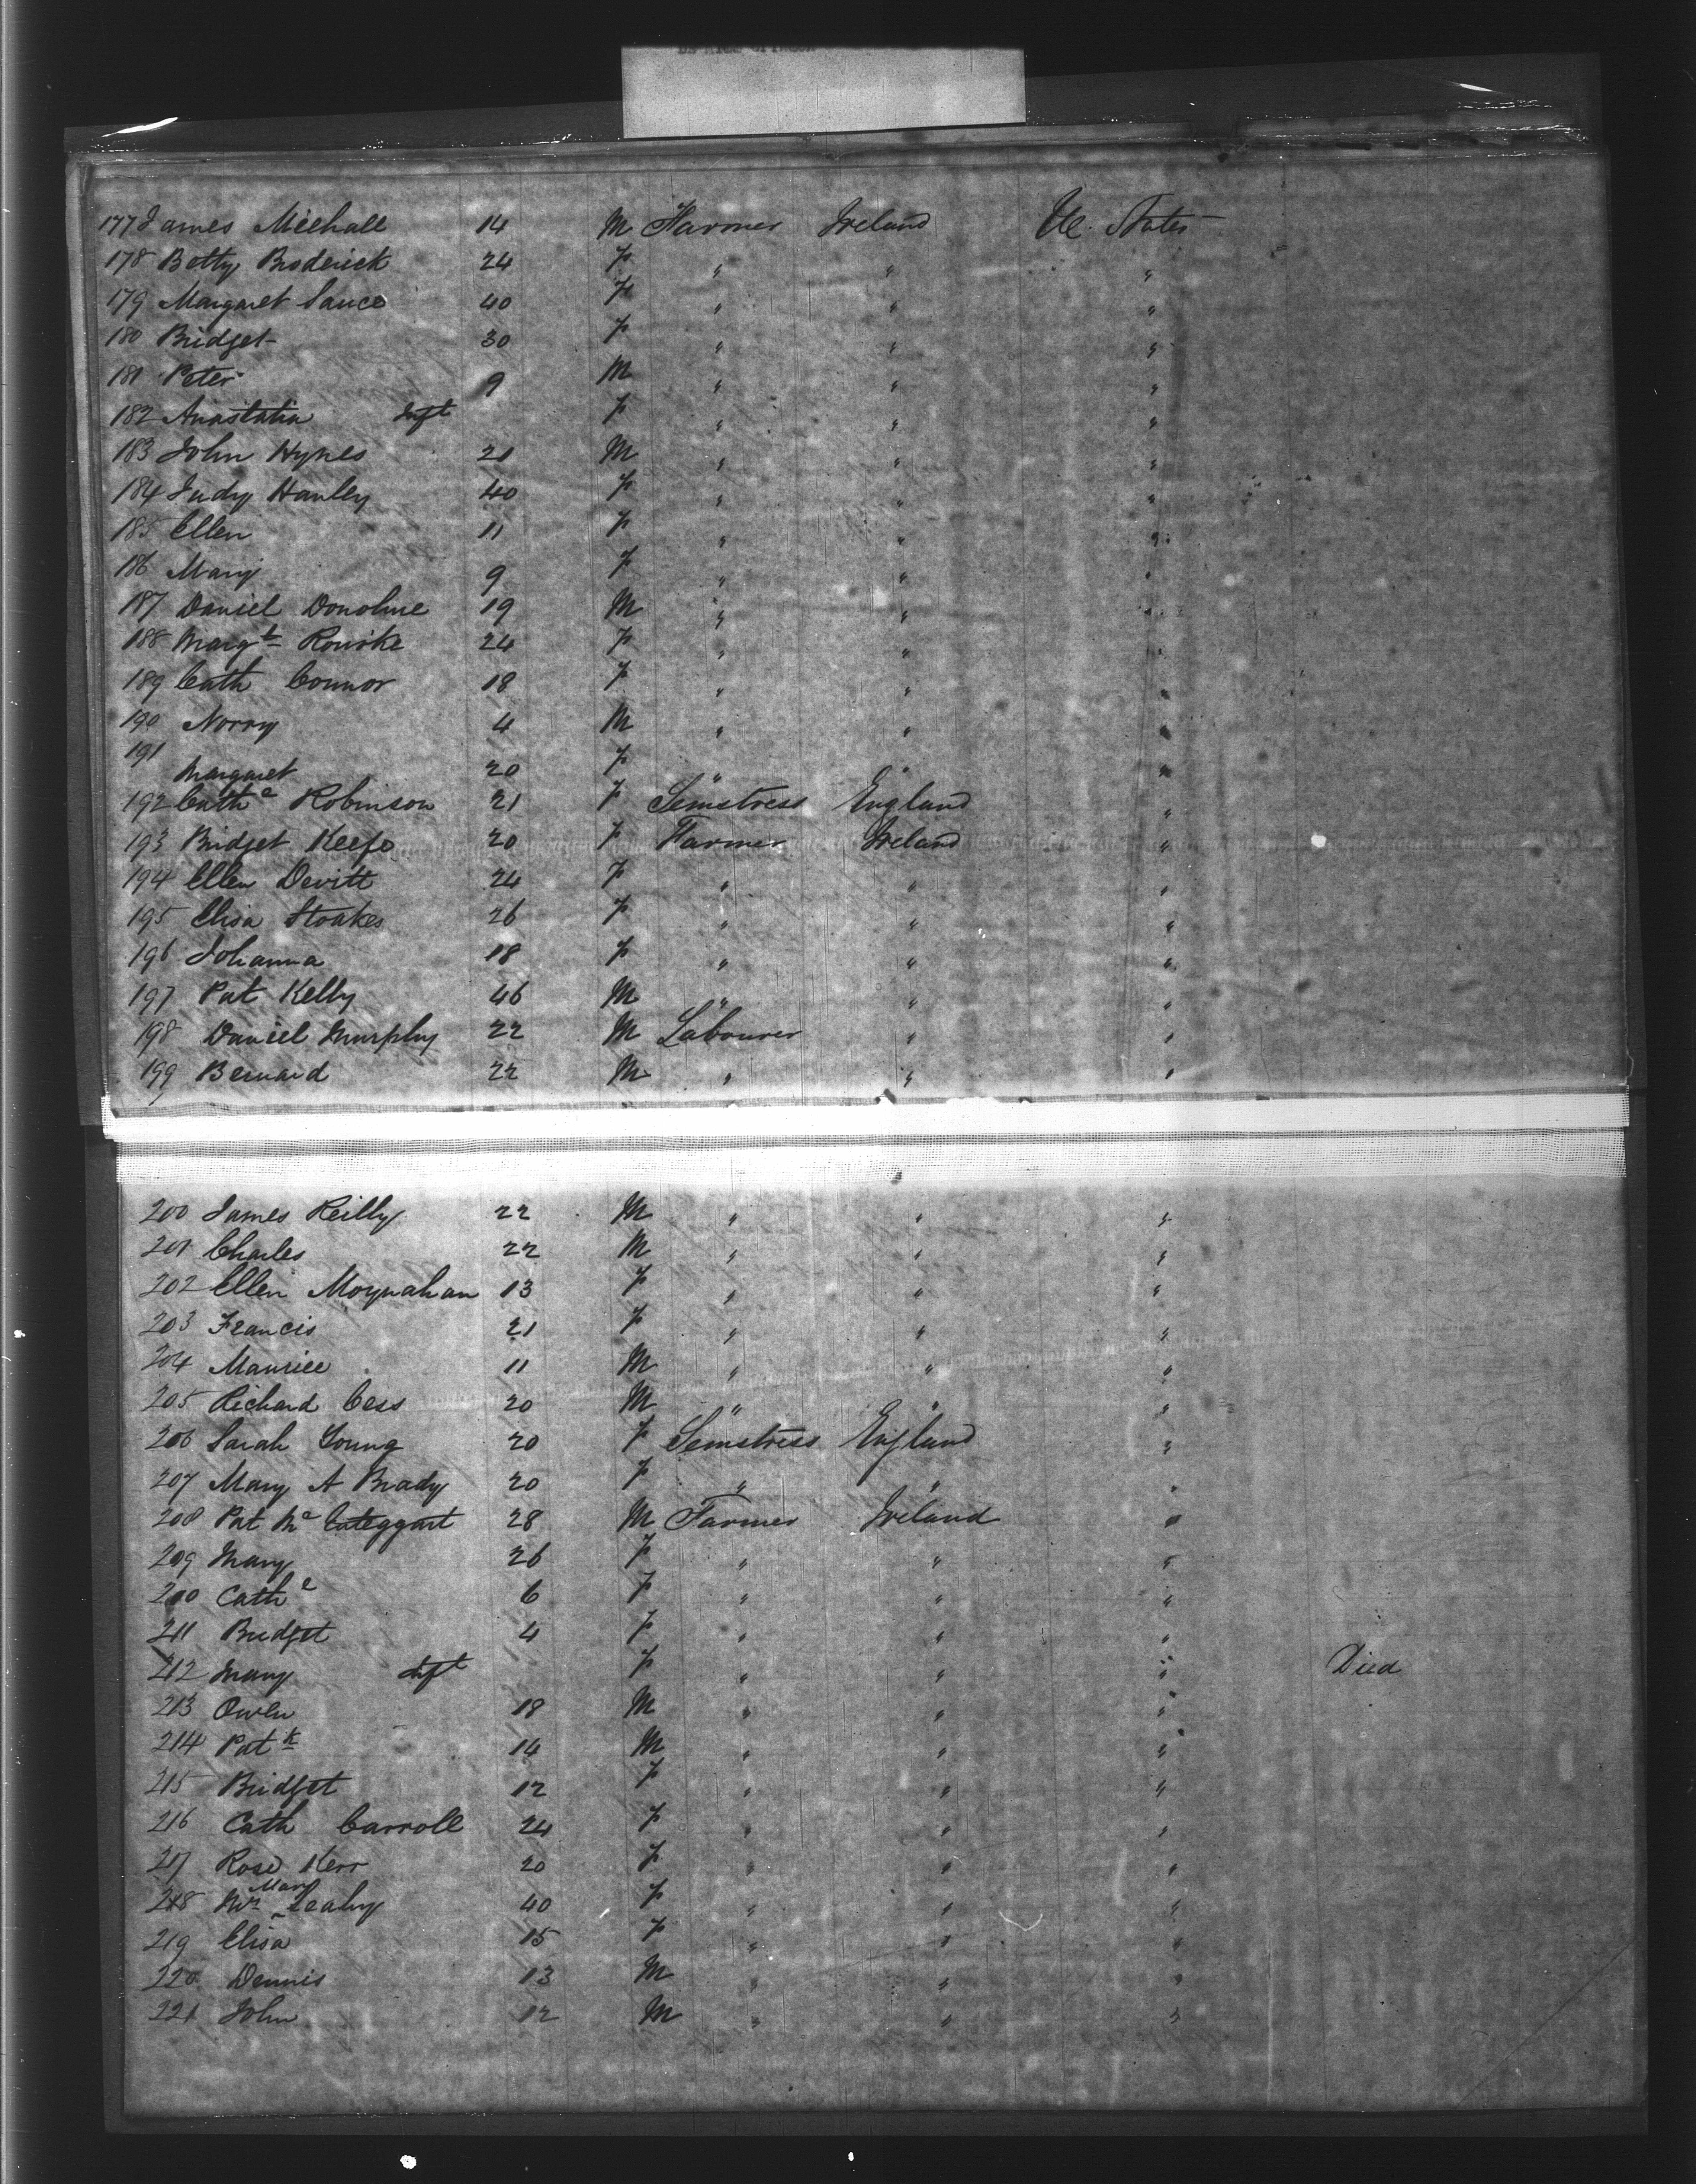 177 James Meehall 14 M Farmer Ireland U. States
178 Betty Broderick 24 F " " "
179 Margaret Sauce 40 F " " "
180 Bridget 30 F " " "
181 Peter 9 M " " "
182 Anastatia Inft F " " "
183 John Hynes 21 M " " "
184 Judy Hanley 40 F " " "
185 Ellen 11 F " " "
186 Mary 9 F " " "
187 Daniel Donohue 19 M " " "
188 Margt Rourke 24 F " " "
189 Cath Connor 18 F " " "
190 Norry 4 M " " "
191 Margaret 20 F " " "
192 Cathe Robinson 21 F Semstress England "
193 Bridget Keefe 20 F Farmer Ireland "
194 Ellen Devitt 24 F " " "
195 Elisa Stoakes 26 F " " "
196 Johanna 18 F " " "
197 Pat Kelly 46 M " " "
198 Daniel Murphy 22 M Labourer " "
199 Bernard 22 M " " "
200 James Reilly 22 M " " "
201 Charles 22 M " " "
202 Ellen Moynahan 13 F " " "
203 Francis 21 F " " "
204 Maurice 11 M " " "
205 Richard Cess 20 M " " "
206 Sarah Young 20 F Semstress England "
207 Mary A Brady 20 F " " "
208 Pat Mc Categgart 28 M Farmer Ireland "
209 Mary 26 F " " "
210 Cathe 6 F " " "
211 Bridget 4 F " " "
212 Mary Inft F " " " Died
213 Owen 18 M " " "
214 Patk 14 M " " "
215 Bridget 12 F " " "
216 Cath Carroll 24 F " " "
217 Rose Kerr 20 F " " "
218 Mrs Mary Leahy 40 F " " "
219 Elisa 15 F " " "
220 Dennis 13 M " " "
221 John 12 M " " "